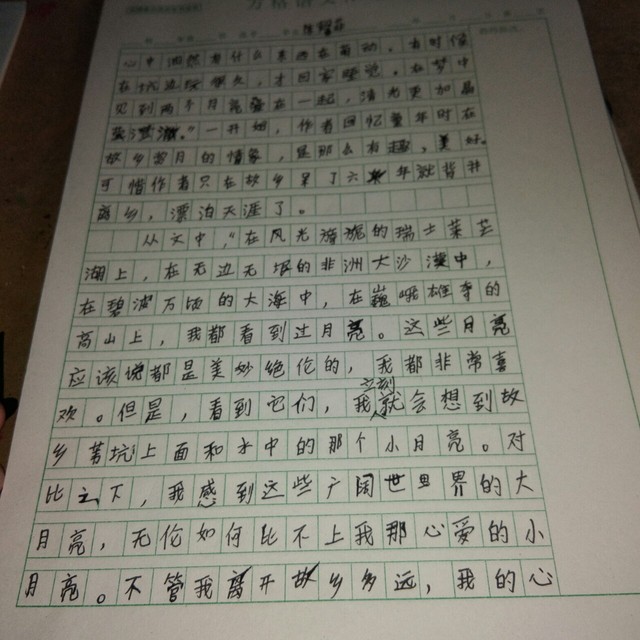 心中油然有什么东西在萌动。有时候
在坑边玩很久，才回家睡觉。在梦中
见到两个月亮叠在一起，清光更加晶
莹澄澈。”一开始，作者回忆童年时在
故乡望月的情景，是那么有趣，美好。
可惜作者只在故乡呆了六年就背井
离乡，漂泊天涯了。
从文中，“在风光旖旎的瑞士莱芒
湖上，在无边无垠的非洲大沙漠中，
在碧波万顷的大海中，在巍峨雄奇的
高山上，我都看到过月亮。这些月亮
应该说都是美妙绝伦的，我都非常喜
欢。但是，看到它们，我立刻就会想到故
乡苇坑上面和水中的那个小月亮。对
比之下，我感到这些广阔世界的大
月亮，无论如何比不上我那心爱的小
月亮。不管我离开故乡多远，我的心